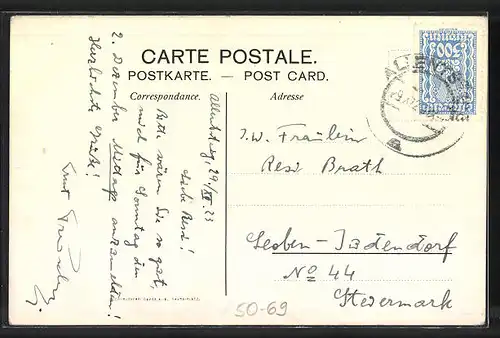 CARTE POSTALE.
POSTKARTE. — POST CARD.
Correspondance.
Adresse
29/XI. 23
Liebe Resi!
Bitte wären Sie so gut,
mich für Sonntag den
2. Dezember Mittags anzumelden!
Herzlichste Grüße!
Ernst
J. W. Fräulein
Resi Brath
Leoben-Judendorf
No 44
Steiermark
50-69
500